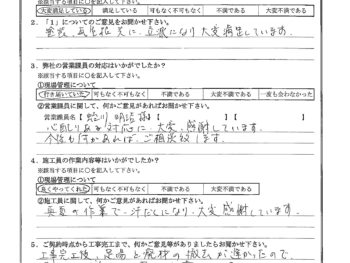 ※該当する項目に○を記入して下さい。
大変満足している 満足している 可もなく不可もなく 不満である 大変不満である
2．「1」についてのご意見をお聞かせ下さい。
立派になり大変満足しています。
3．弊社の営業課員の対応はいかがでしたか？
※該当する項目に○を記入して下さい。
①現場管理について
行き届いていた 可もなく不可もなく 不満である 大変不満である 一度も会わなかった
②営業課員に関して、何かご意見があればお聞かせ下さい。
営業課員名【 】【 】
心配りある対応に、大変、感謝しています。
今後も何かあれば、ご相談致します。
4．施工員の作業内容等はいかがでしたか？
※該当する項目に○を記入して下さい。
①現場管理について
良くやってくれた 可もなく不可もなく 不満である 大変不満である
②施工員に関して、何かご意見があればお聞かせ下さい。
真夏の作業で、汗だくになり、大変感謝しています。
5．ご契約時点から工事完工まで、何かご意見等がありましたらお聞かせ下さい。
工事完工後、足場と廃材の撤去が遅かったので